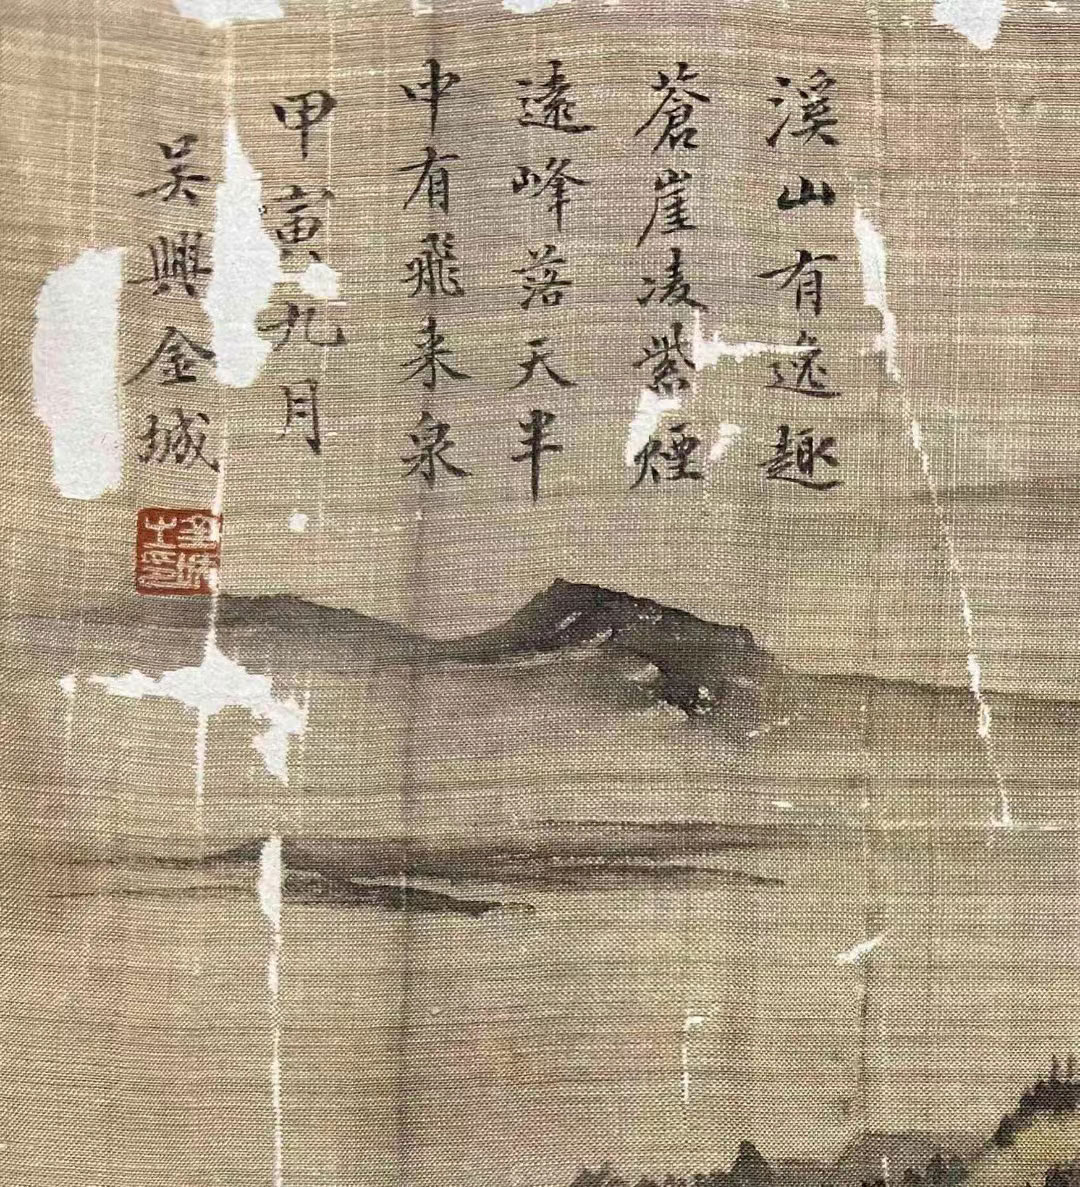 溪山有逸趣
蒼崖凌紫煙
遠峰落天半
中有飛来泉
甲寅九月
吴興金城
金城之印